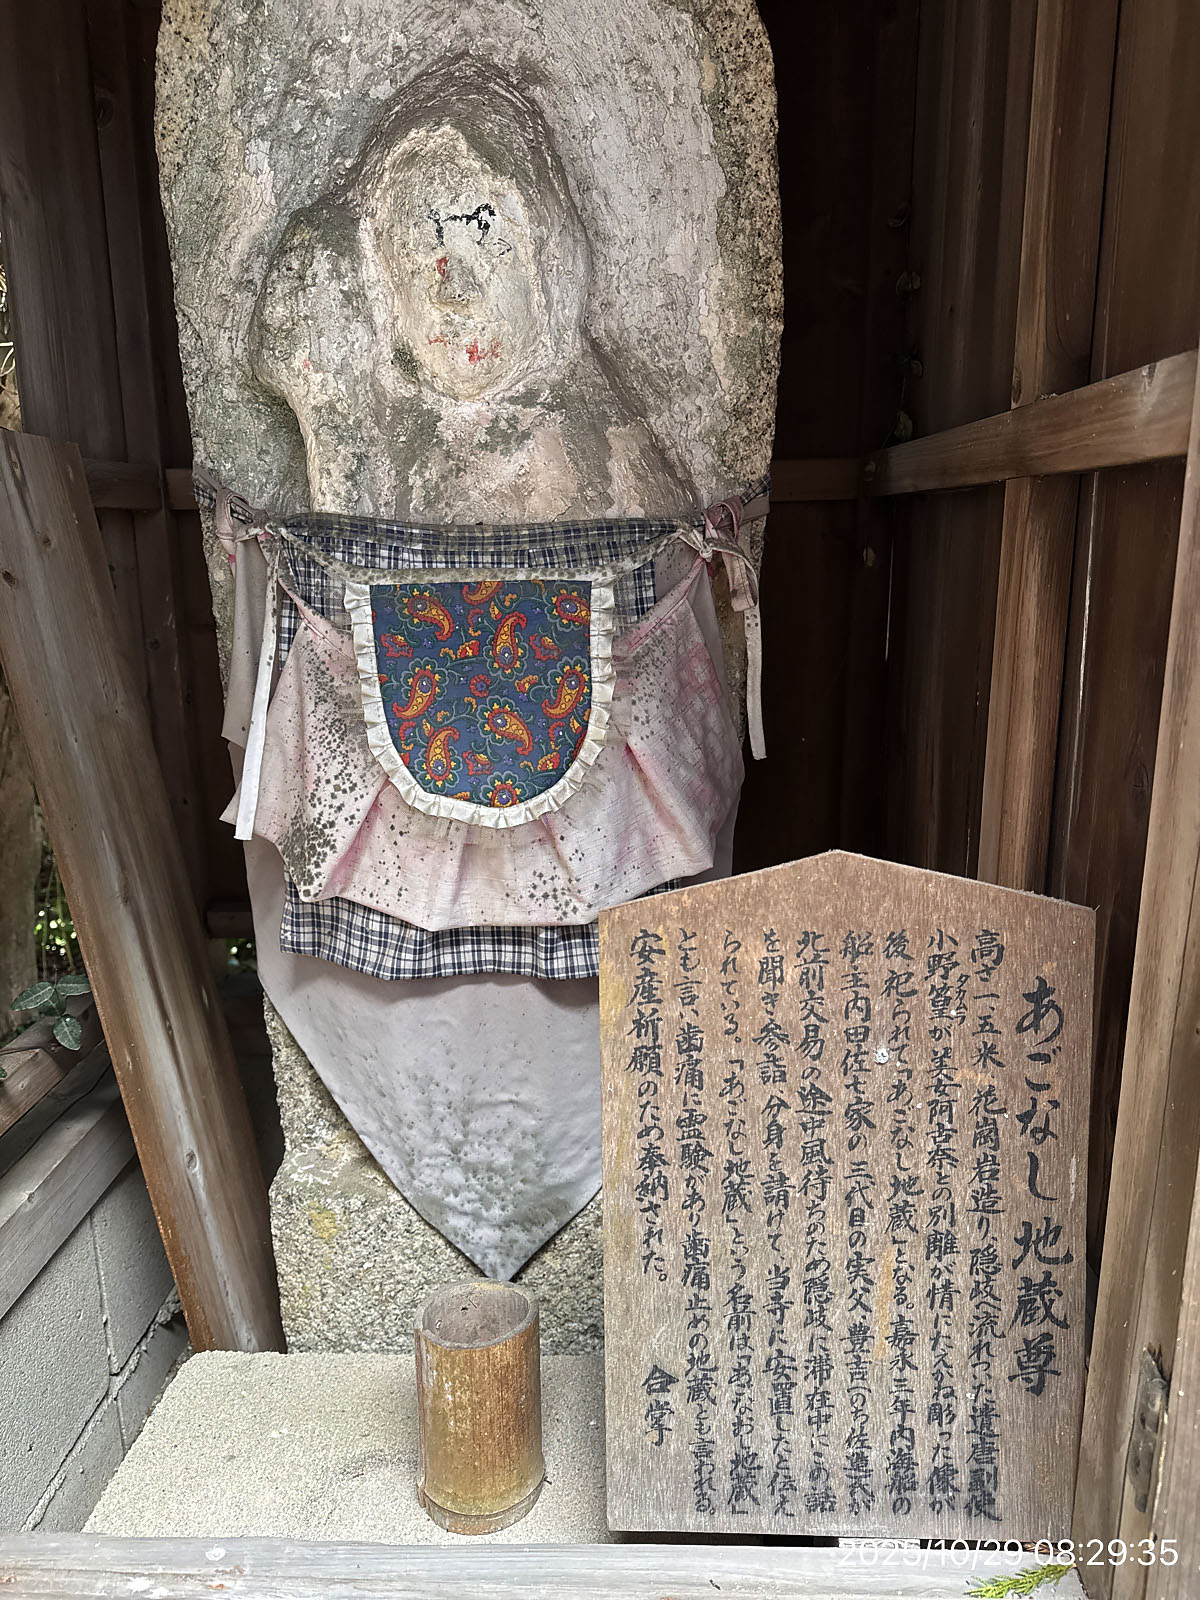 あごなし地蔵尊
高さ一、五米 花崗岩造り、隠岐へ流れついた遣唐副使
小野篁が美女阿古奈との別離が情にたえかね彫った像が
タカムラ
後祀られて「あごなし地蔵」となる。嘉永三年内海船の
船主内田佐七家の三代目の実父・豊吉(のち佐造)が
北前交易の途中風待ちのため隠岐に滞在中にこの話
を聞き参詣 分身を請けて、当寺に安置したと伝え
られている。「あごなし地蔵」という名前は「あごなおし地蔵」
とも言い歯痛に霊験があり歯痛止めの地蔵とも言われる。
安産祈願のため奉納された。
合掌
2025/10/29 08:29:35